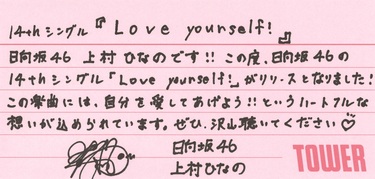 14thシングル『Love yourself!』
日向坂46 上村ひなのです!! この度、日向坂46の
14thシングル「Love yourself!」がリリースとなりました!
この楽曲には、自分を愛してあげよう!!というハートフルな
想いが込められています。ぜひ、沢山聴いてください♡
日向坂46
上村ひなの
TOWER